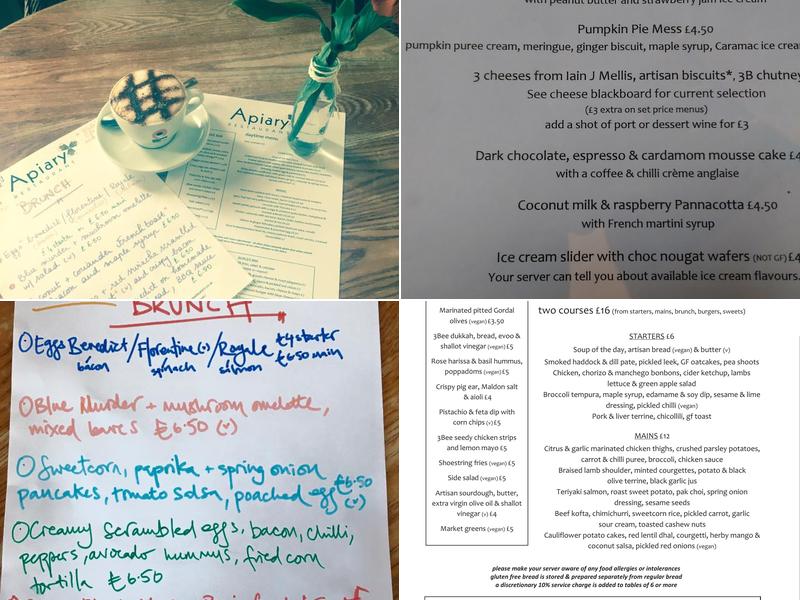 Apiary
RESTAURANT
BRUNCH
Apiary
RESTAURANT
daytime menu
with peanut butter and strawberry jam ice cream
Pumpkin Pie Mess £4.50
pumpkin puree cream, meringue, ginger biscuit, maple syrup, Caramac ice crea
3 cheeses from Iain J Mellis, artisan biscuits*, 3B chutney
See cheese blackboard for current selection
(£3 extra on set price menus)
add a shot of port or dessert wine for £3
Dark chocolate, espresso & cardamom mousse cake £4
with a coffee & chilli crème anglaise
Coconut milk & raspberry Pannacotta £4.50
with French martini syrup
Ice cream slider with choc nougat wafers (NOT GF) £4
Your server can tell you about available ice cream flavours.
BRUNCH
Eggs Benedict/Florentine(v)/Royale £4 starter
bacon spinach salmon £6.50 main
Blue Murder + mushroom omelette,
mixed leaves £6.50 (v)
Sweetcorn, paprika + spring onion
pancakes, tomato salsa, poached egg £6.50
(v)
Creamy Scrambled eggs, bacon, chilli,
peppers, avocado hummus, fried corn
tortilla £6.50
Marinated pitted Gordal
olives (vegan) £3.50
3Bee dukkah, bread, evoo &
shallot vinegar (vegan) £5
Rose harissa & basil hummus,
poppadoms (vegan) £5
Crispy pig ear, Maldon salt
& aioli £4
Pistachio & feta dip with
corn chips (v) £5
3Bee seedy chicken strips
and lemon mayo £5
Shoestring fries (vegan) £5
Side salad (vegan) £5
Artisan sourdough, butter,
extra virgin olive oil & shallot
vinegar (v) £4
Market greens (vegan) £5
two courses £16 (from starters, mains, brunch, burgers, sweets)
STARTERS £6
Soup of the day, artisan bread (vegan) & butter (v)
Smoked haddock & dill pate, pickled leek, GF oatcakes, pea shoots
Chicken, chorizo & manchego bonbons, cider ketchup, lambs
lettuce & green apple salad
Broccoli tempura, maple syrup, edamame & soy dip, sesame & lime
dressing, pickled chilli (vegan)
Pork & liver terrine, chicollili, gf toast
MAINS £12
Citrus & garlic marinated chicken thighs, crushed parsley potatoes,
carrot & chilli puree, broccoli, chicken sauce
Braised lamb shoulder, minted courgettes, potato & black
olive terrine, black garlic jus
Teriyaki salmon, roast sweet potato, pak choi, spring onion
dressing, sesame seeds
Beef kofta, chimichurri, sweetcorn rice, pickled carrot, garlic
sour cream, toasted cashew nuts
Cauliflower potato cakes, red lentil dhal, courgetti, herby mango &
coconut salsa, pickled red onions (vegan)
please make your server aware of any food allergies or intolerances
gluten free bread is stored & prepared separately from regular bread
a discretionary 10% service charge is added to tables of 6 or more